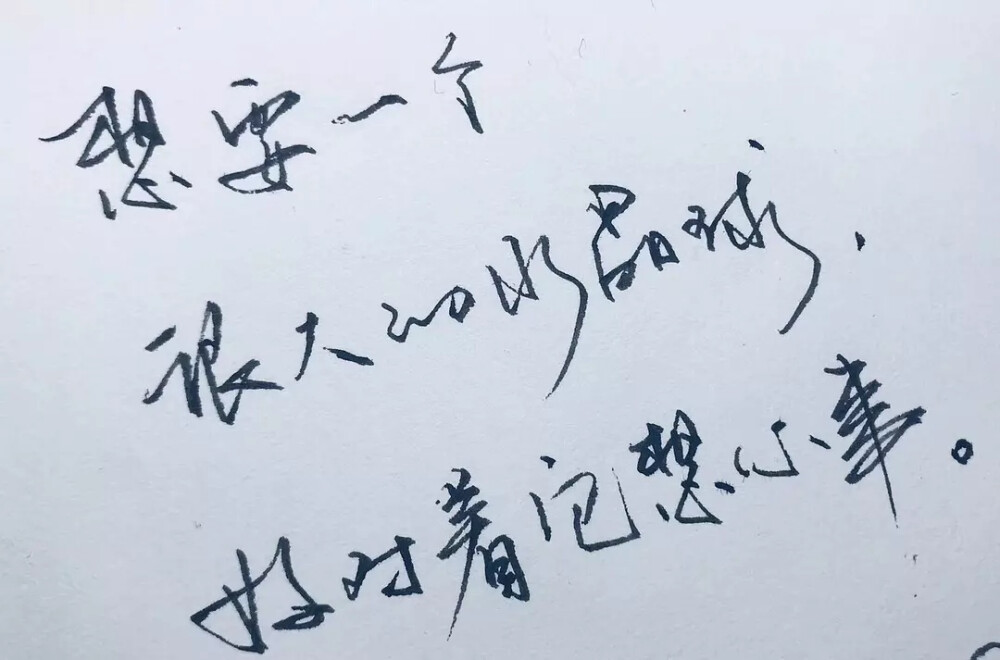 想要一个
很大的水晶球，
好对着它想心事。